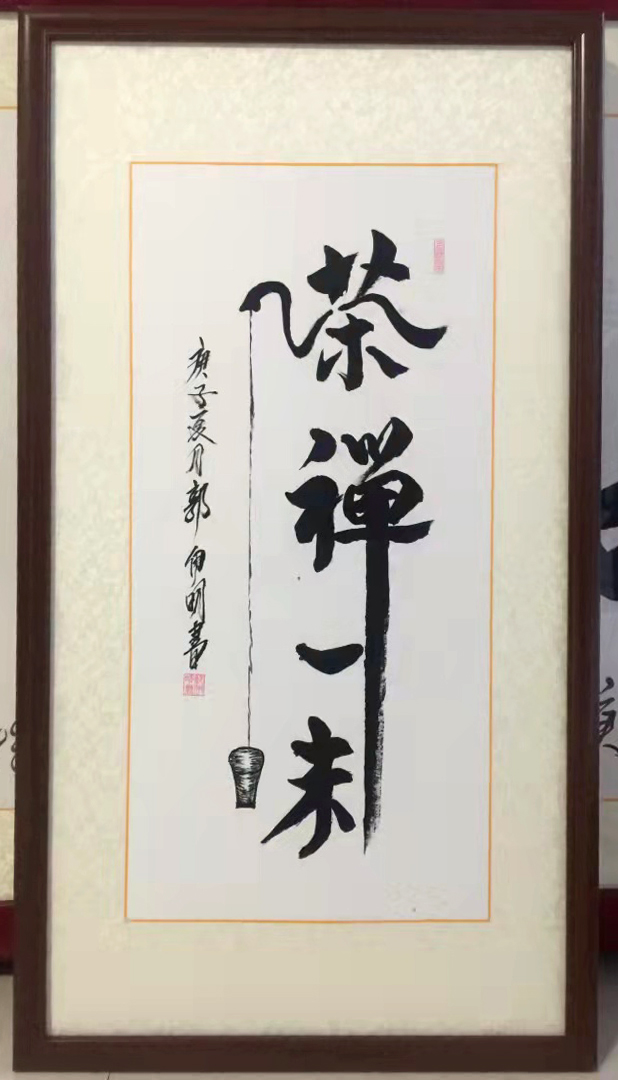 茶禪一味
庚子夏月郭向明書